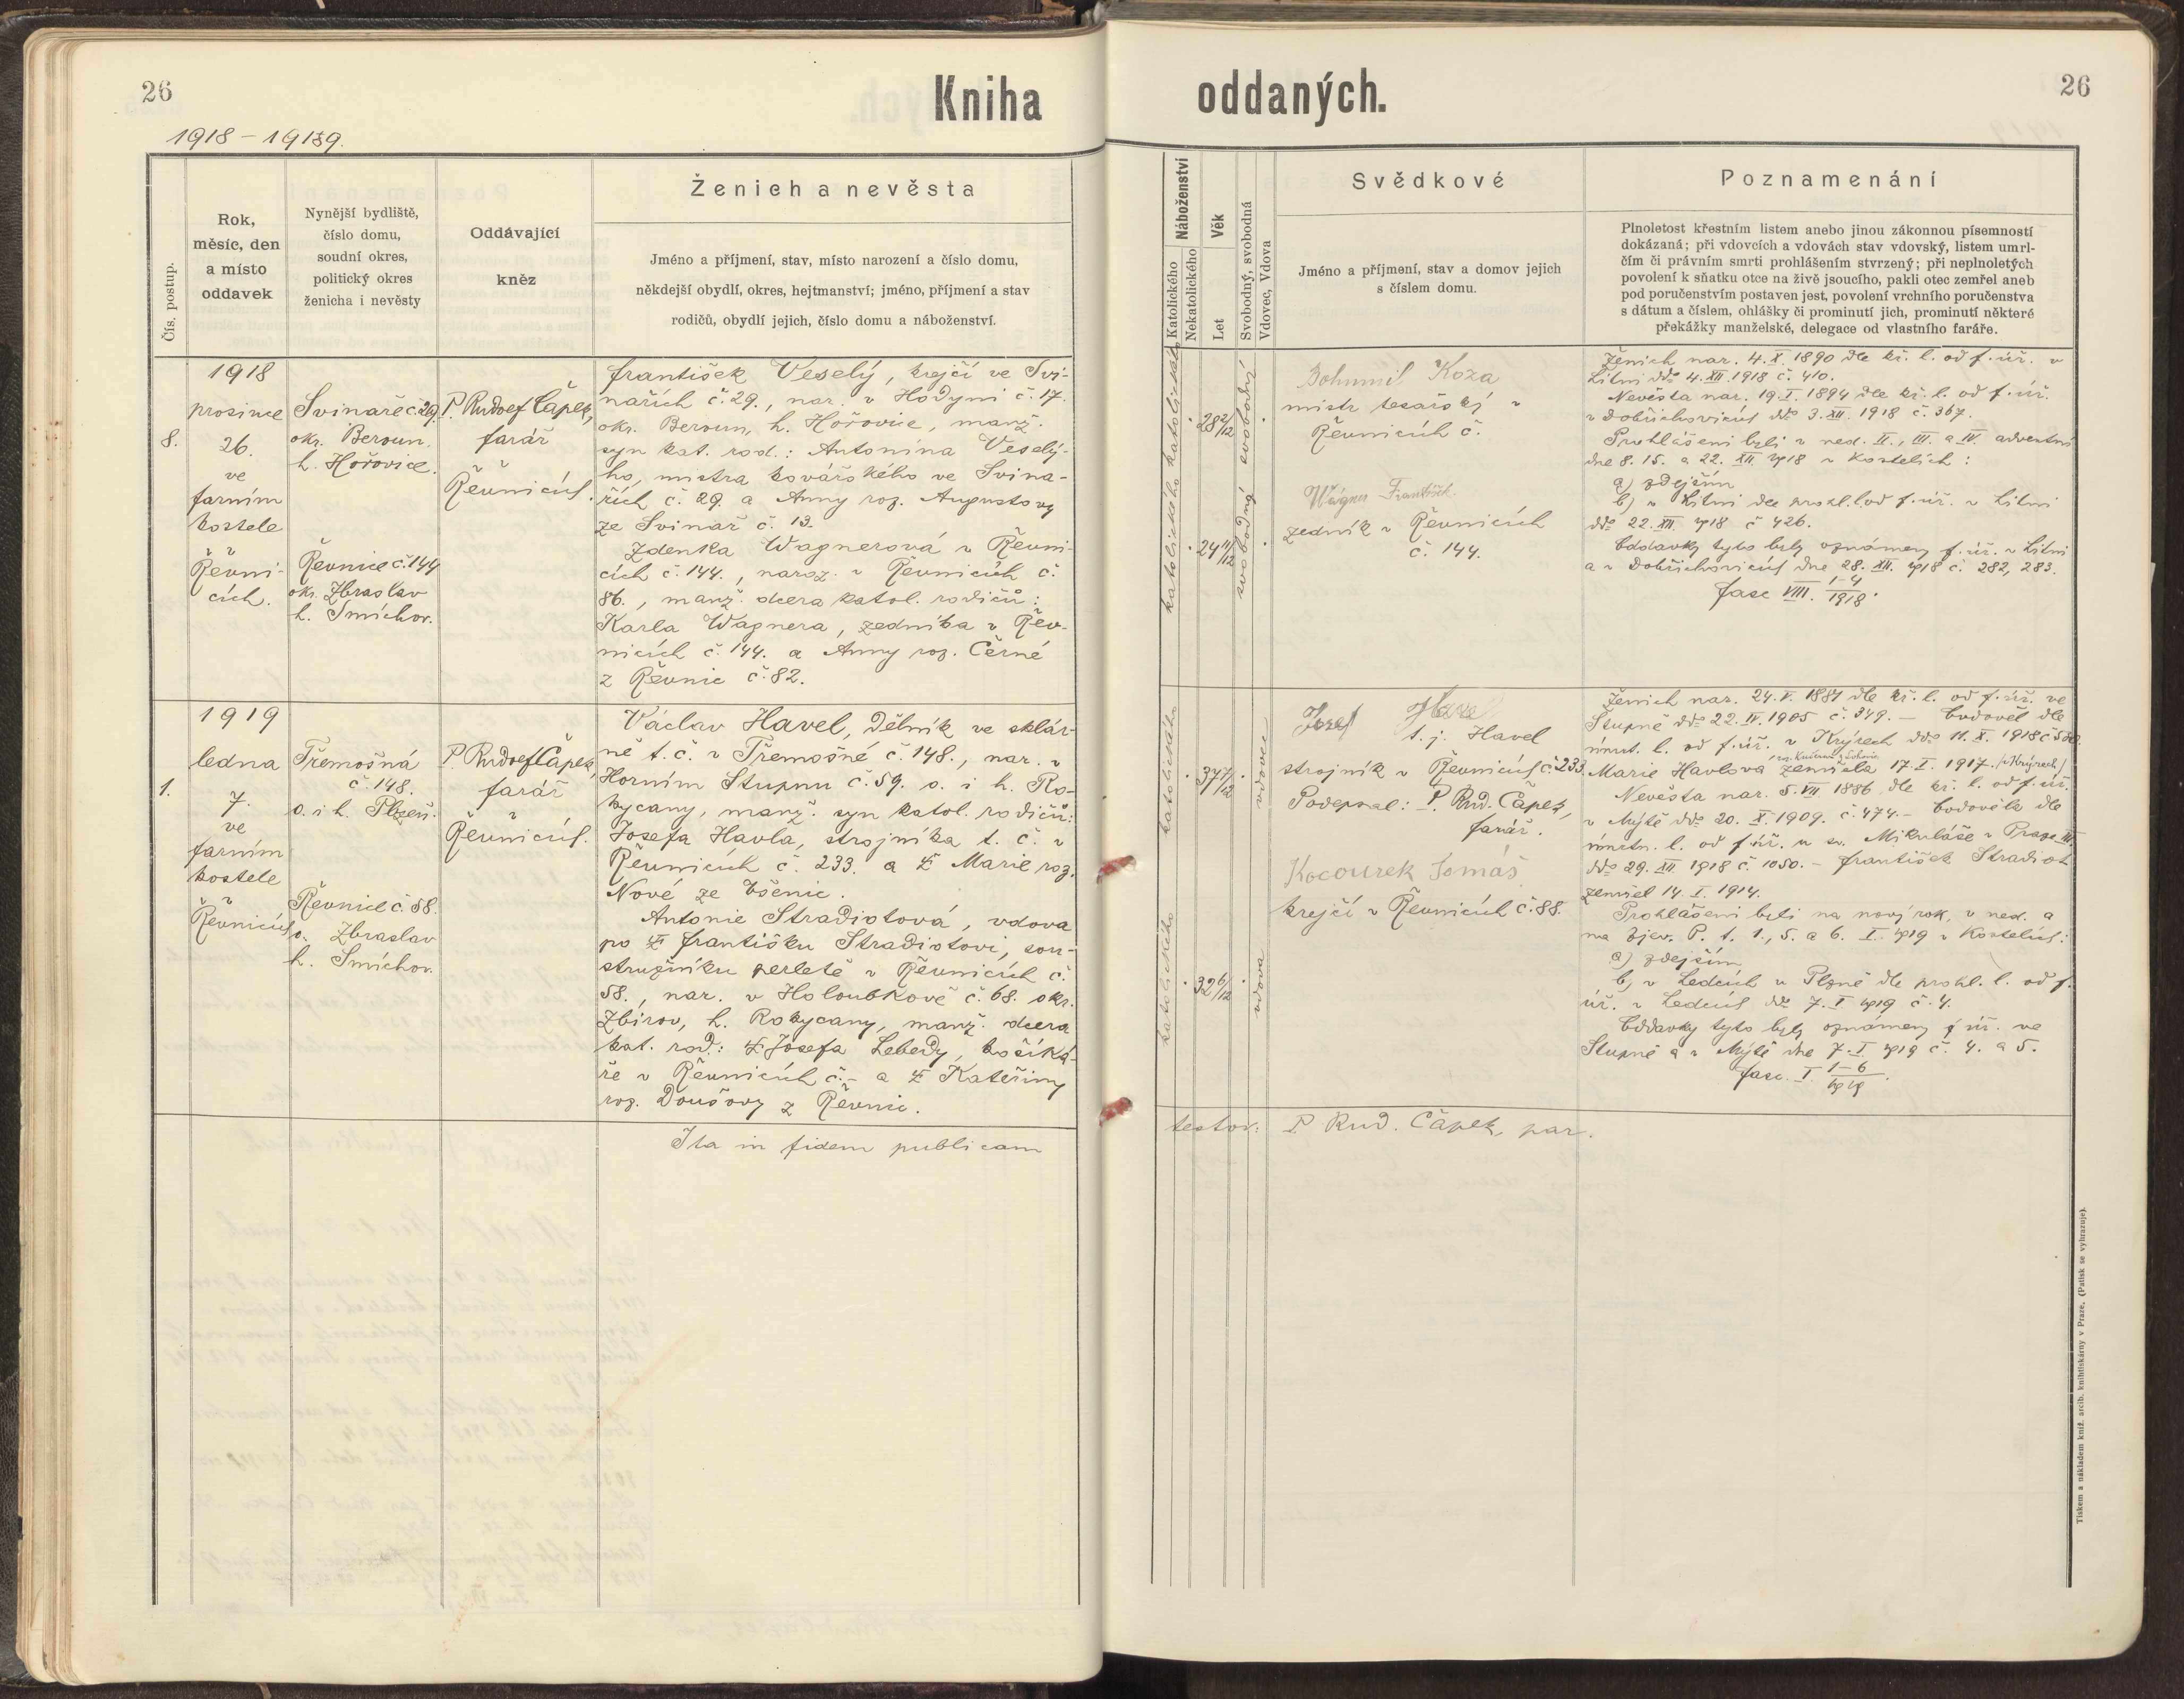 26
Kniha
oddaných.
26
1918 - 1919.
Čís. postup.
Rok,
měsíc, den
a místo
oddavek
Nynější bydliště,
číslo domu,
soudní okres,
politický okres
ženicha i nevěsty
Oddávající
kněz
Ženich a nevěsta
Jméno a příjmení, stav, místo narození a číslo domu,
někdejší obydlí, okres, hejtmanství; jméno, příjmení a stav
rodičů, obydlí jejich, číslo domu a náboženství.
Náboženství
Katolického
Nekatolického
Věk
Let
Svobodný, svobodná
Vdovec, Vdova
Svědkové
Jméno a příjmení, stav a domov jejich
s číslem domu.
Poznamenání
Plnoletost křestním listem anebo jinou zákonnou písemností
dokázaná; při vdovcích a vdovách stav vdovský, listem umrl-
čím či právním smrti prohlášením stvrzený; při neplnoletých
povolení k sňatku otce na živě jsoucího, pakli otec zemřel aneb
pod poručenstvím postaven jest, povolení vrchního poručenstva
s dátum a číslem, ohlášky či prominutí jich, prominutí některé
překážky manželské, delegace od vlastního faráře.
8.
1918
prosince
26.
ve
farním
kostele
v
Řevni-
cích.
Svinaře č. 29.
okr. Beroun.
h. Hořovice.
Řevnice č. 144
okr. Zbraslav
h. Smíchov.
P. Rudolf Čápek,
farář
v
Řevnicích.
František Veselý, krejčí ve Svi-
nařích č. 29., nar. v Hodyni č. 17.
okr. Beroun, h. Hořovice, manž.
syn kat. rod.: Antonína Veselý-
ho, mistra kovářského ve Svina-
řích č. 29. a Anny roz. Augustovy
ze Svinař č. 13.
Zdenka Wagnerová v Řevni-
cích č. 144., naroz. v Řevnicích č.
86., manž. dcera katol. rodičů:
Karla Wagnera, zedníka v Řev-
nicích č. 144. a Anny roz. Černé
z Řevnic č. 82.
katolického
katolického
28 2/12
24 11/12
svobodný
svobodná
Bohumil Koza
mistr tesařský v
Řevnicích č.
Wágner František
zedník v Řevnicích
č. 144.
Ženich nar. 4. X. 1890 dle kř. l. od f. úř. v
Litni ddo 4. XII 1918 č. 410.
Nevěsta nar. 19. I. 1894 dle kř. l. od f. úř.
v Dobřichovicích ddo 3. XII. 1918 č. 367.
Prohlášeni byli v ned. II., III. a IV. adventní
dne 8. 15. a 22. XII. 1918 v kostelích:
a) zdejším
b) v Litni dle prohl. l. od f. úř. v Litni
ddo 22. XII. 1918 č 426.
Oddavky tyto byly oznámeny f. úř. v Litni
a v Dobřichovicích dne 28. XII. 1918 č. 282, 283.
fasc VIII. 1-4/1918.
1.
1919
ledna
7.
ve
farním
kostele
v
Řevnicích
Třemošná
č. 148.
o. i h. Plzeň.
Řevnice č. 58.
o. Zbraslav
h. Smíchov.
P. Rudolf Čápek,
farář
v
Řevnicích.
Václav Havel, dělník ve sklár-
ně t. č. v Třemošné č. 148., nar. v
Horním Stupnu č. 59. o. i h. Ro-
kycany, manž. syn katol. rodičů:
Josefa Havla, strojníka t. č. v
Řevnicích č. 233. a Marie roz.
Nové ze Všenic.
Antonie Stradiotová, vdova
po Františku Stradiotovi, sou-
stružníku perletě v Řevnicích č.
58., nar. v Holoubkově č. 68. okr.
Zbirov, h. Rokycany, manž. dcera
kat. rod.: Josefa Lebedy, košíká-
ře v Řevnicích č. - a Kateřiny
roz. Doušovy z Řevnic.
katolického
katolického
37 7/12
32 6/12
vdovec
vdova
Josef Havel
t. j. Havel
strojník v Řevnicích č. 233.
Podepsal: P. Rud. Čápek,
farář.
Kocourek Tomáš
krejčí v Řevnicích č. 88.
Ženich nar. 24. V. 1881 dle kř. l. od f. úř. ve
Stupně ddo 22. IV. 1905 č. 349. - Ovdověl dle
úmrt. l. od f. úř. v Krýrech ddo 11. X. 1918
Marie Havlová zemřela 17. I. 1917. /v Krýrech/
Nevěsta nar. 5. VII 1886 dle kř. l. od f. úř.
v Mýtě ddo 20. X. 1909. č. 474. - Ovdověla dle
úmrtn. l. od f. úř. u sv. Mikuláše v Praze III.
ddo 29. XII 1918 č. 1050. - František Stradiot
zemřel 14. I. 1914.
Prohlášeni byli na nový rok, v ned. a
na Zjev. P. t. 1., 5. a 6. I. 1919 v kostelích:
a) zdejším
b) v Ledcích u Plzně dle prohl. l. od f.
úř. v Ledcích ddo 7. I 1919 č. 4.
Oddavky tyto byly oznámeny f. úř. ve
Stupně a v Mýtě dne 7. I 1919 č. 4. a 5.
fasc. I. 1-6/1919.
Ita in fidem publicam
testor: P Rud. Čápek, par.
Tiskem a nákladem kníž. arcib. knihtiskárny v Praze. (Patisk se vyhrazuje).